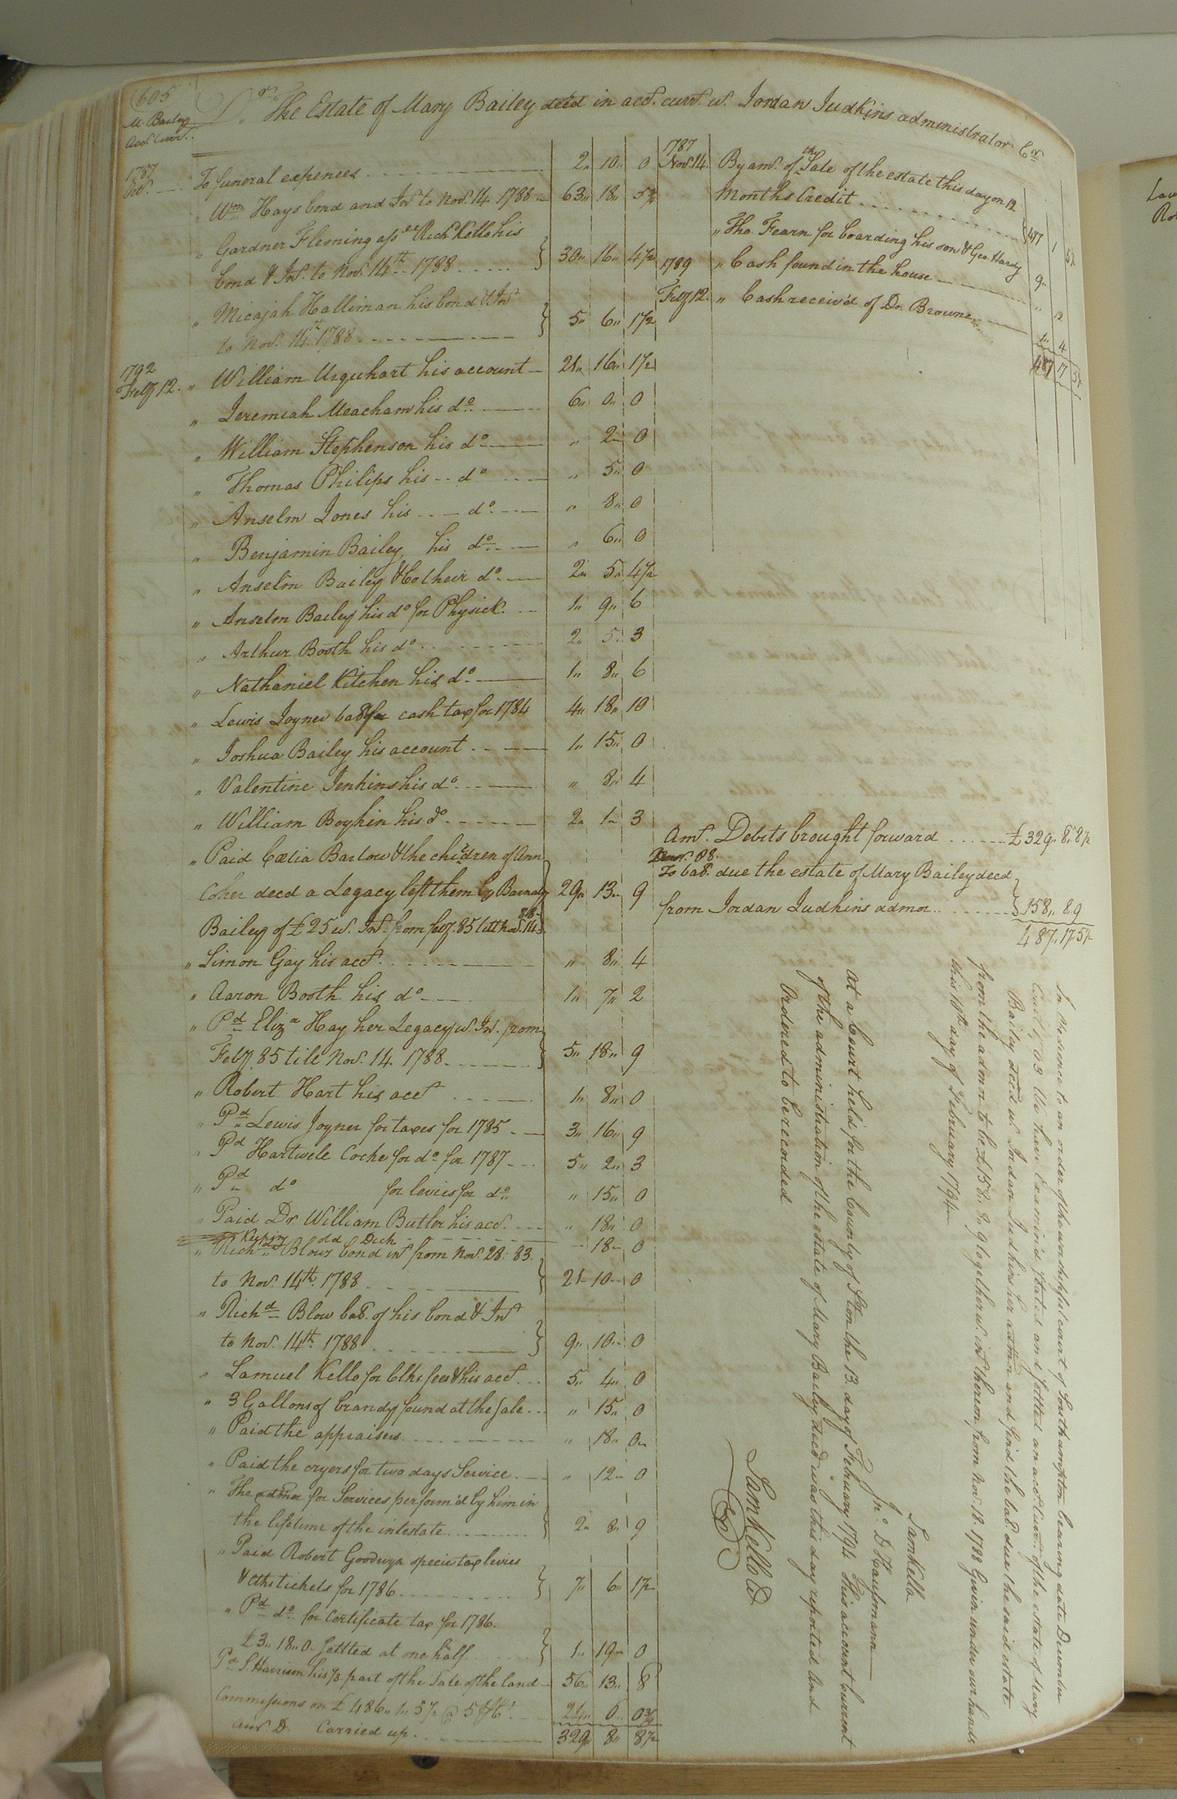 605
M. Bailey
Acct Curr.t
Dr. The Estate of Mary Bailey decd in acct. curt. w. Jordan Judkins administrator Cr.
1787
To funeral expences 2 10 0
" Wm. Hays bond and Int. to Nov. 14. 1788 63 18 5½
" Gardner Fleming assee. Richd. Kello his
bond & Int. to Nov. 14th. 1788 30 16 4½
" Micajah Halliman his bond & Int.
to Nov. 14th 1788 5 6 1½
1792
Feby 12. " William Urquhart his account 21 16 1½
" Jeremiah Meacham his do. 6 0 0
" William Stephenson his do. " 2 0
" Thomas Philips his do " 5 0
" Anselm Jones his do. " 8 0
" Benjamin Bailey, his do. " 6 0
" Anselm Bailey & Co their do. 2 5 4½
" Anselm Bailey his do for Physick 1 9 6
" Arthur Booth his do. 2 5 3
" Nathaniel Kitchen his do. 1 8 6
" Lewis Joyner bal. for cash tax for 1784 4 18 10
" Joshua Bailey his account 1 15 0
" Valentine Jenkins his do. " 8 4
" William Boykin his do. 2 1 3
" Paid Cælia Barlow & the children of Ann
Coker decd a Legacy left them by Barnaby 29 13 9
Bailey of £25 w. Int. from feby. 85 till Nov. 14. 88
" Simon Gay his acct. " 8 4
" Aaron Booth his do. 1 7 2
" Pd. Eliza Hay her Legacy w. Int. from
Feby 85 till Nov. 14. 1788 5 18 9
" Robert Hart his acct 1 8 0
" Pd. Lewis Joyner for taxes for 1785 3 16 9
" Pd Hartwell Cocke for do. for 1787 5 2 3
" Pd do for levies for do. " 15 0
" Paid Dr. William Butler his acct. " 18 0
18 0
" Richd. Blow bond int from Nov. 28. 83.
to Nov. 14th. 1788 21 10 0
" Richd. Blow bal. of his bond & Int
to Nov. 14th. 1788 9 10 0
" Samuel Kello for Clks fees & his acct. 5 4 0
" 3 Gallons of brandy found at the sale " 15 0
" Paid the appraisers " 18 0
" Paid the cryers for two days Service " 12 0
" The admor for Services perform'd by him in
the lifetime of the intestate 2 8 9
" Paid Robert Goodwyn specie tax levies
& clks tickets for 1786 7 6 1½
" Pd. do. for certificate tax for 1786.
£3. 18. 0. Settled at one half 1 19 0
Pd. S. Harrison his ps. part of the Sale of the land 56 13 8
Commissions on £486. 1. 5½ @ 5 24 6 0¾
Amt. D. Carried up 329 8 8½
1787
Nov. 14. By amt. of the Sale of the estate this day on 12
Months Credit 477 1 5½
" Tho. Fearn for boarding his son & Geo. Hardy 9 " "
1789 " Cash found in the house " 12
Feby 12. " Cash receiv'd of Dr. Browne 1 4
487 17 5½
Amt. Debits brought forward £329. 8. 8½
To bal. due the estate of Mary Bailey decd
from Jordan Judkins admor. 158. 8. 9
487. 17. 5½
In Obedience to an order of the worshipful court of Southampton bearing date December
We have Examined stated and settled an acct. curr. of the estate of Mary
Bailey decd w. Jordan Judkins her admor and find the bal. due the said estate
from the admor to be £158. 8. 9 together w. Int. thereon from Nov. 14. 1788 Given under our hands
this 10th day of February 1794
Sam Kello
Jno. D Haussmann
At a Court held for the County of Ston the 13. day of February 1794 This account current
of the administration of the estate of Mary Bailey decd was this day reported and
Ordered to be recorded
Sam Kello Cl